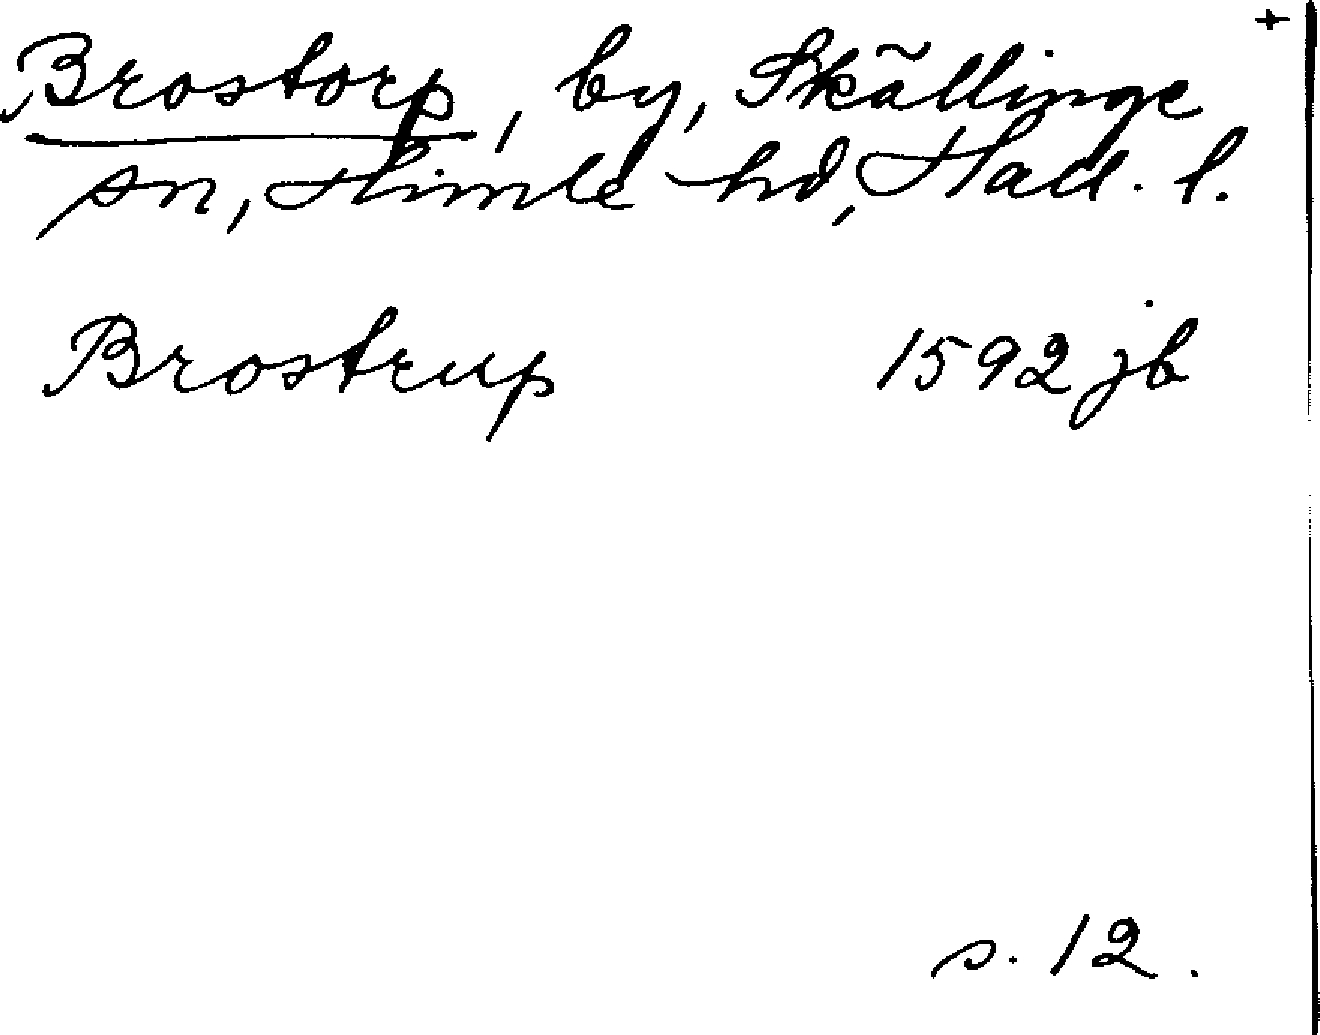 +
Brostorp, by, Skällinge
sn, Himle hd, Hall. l.
Brostrup 1592 jb
s. 12.